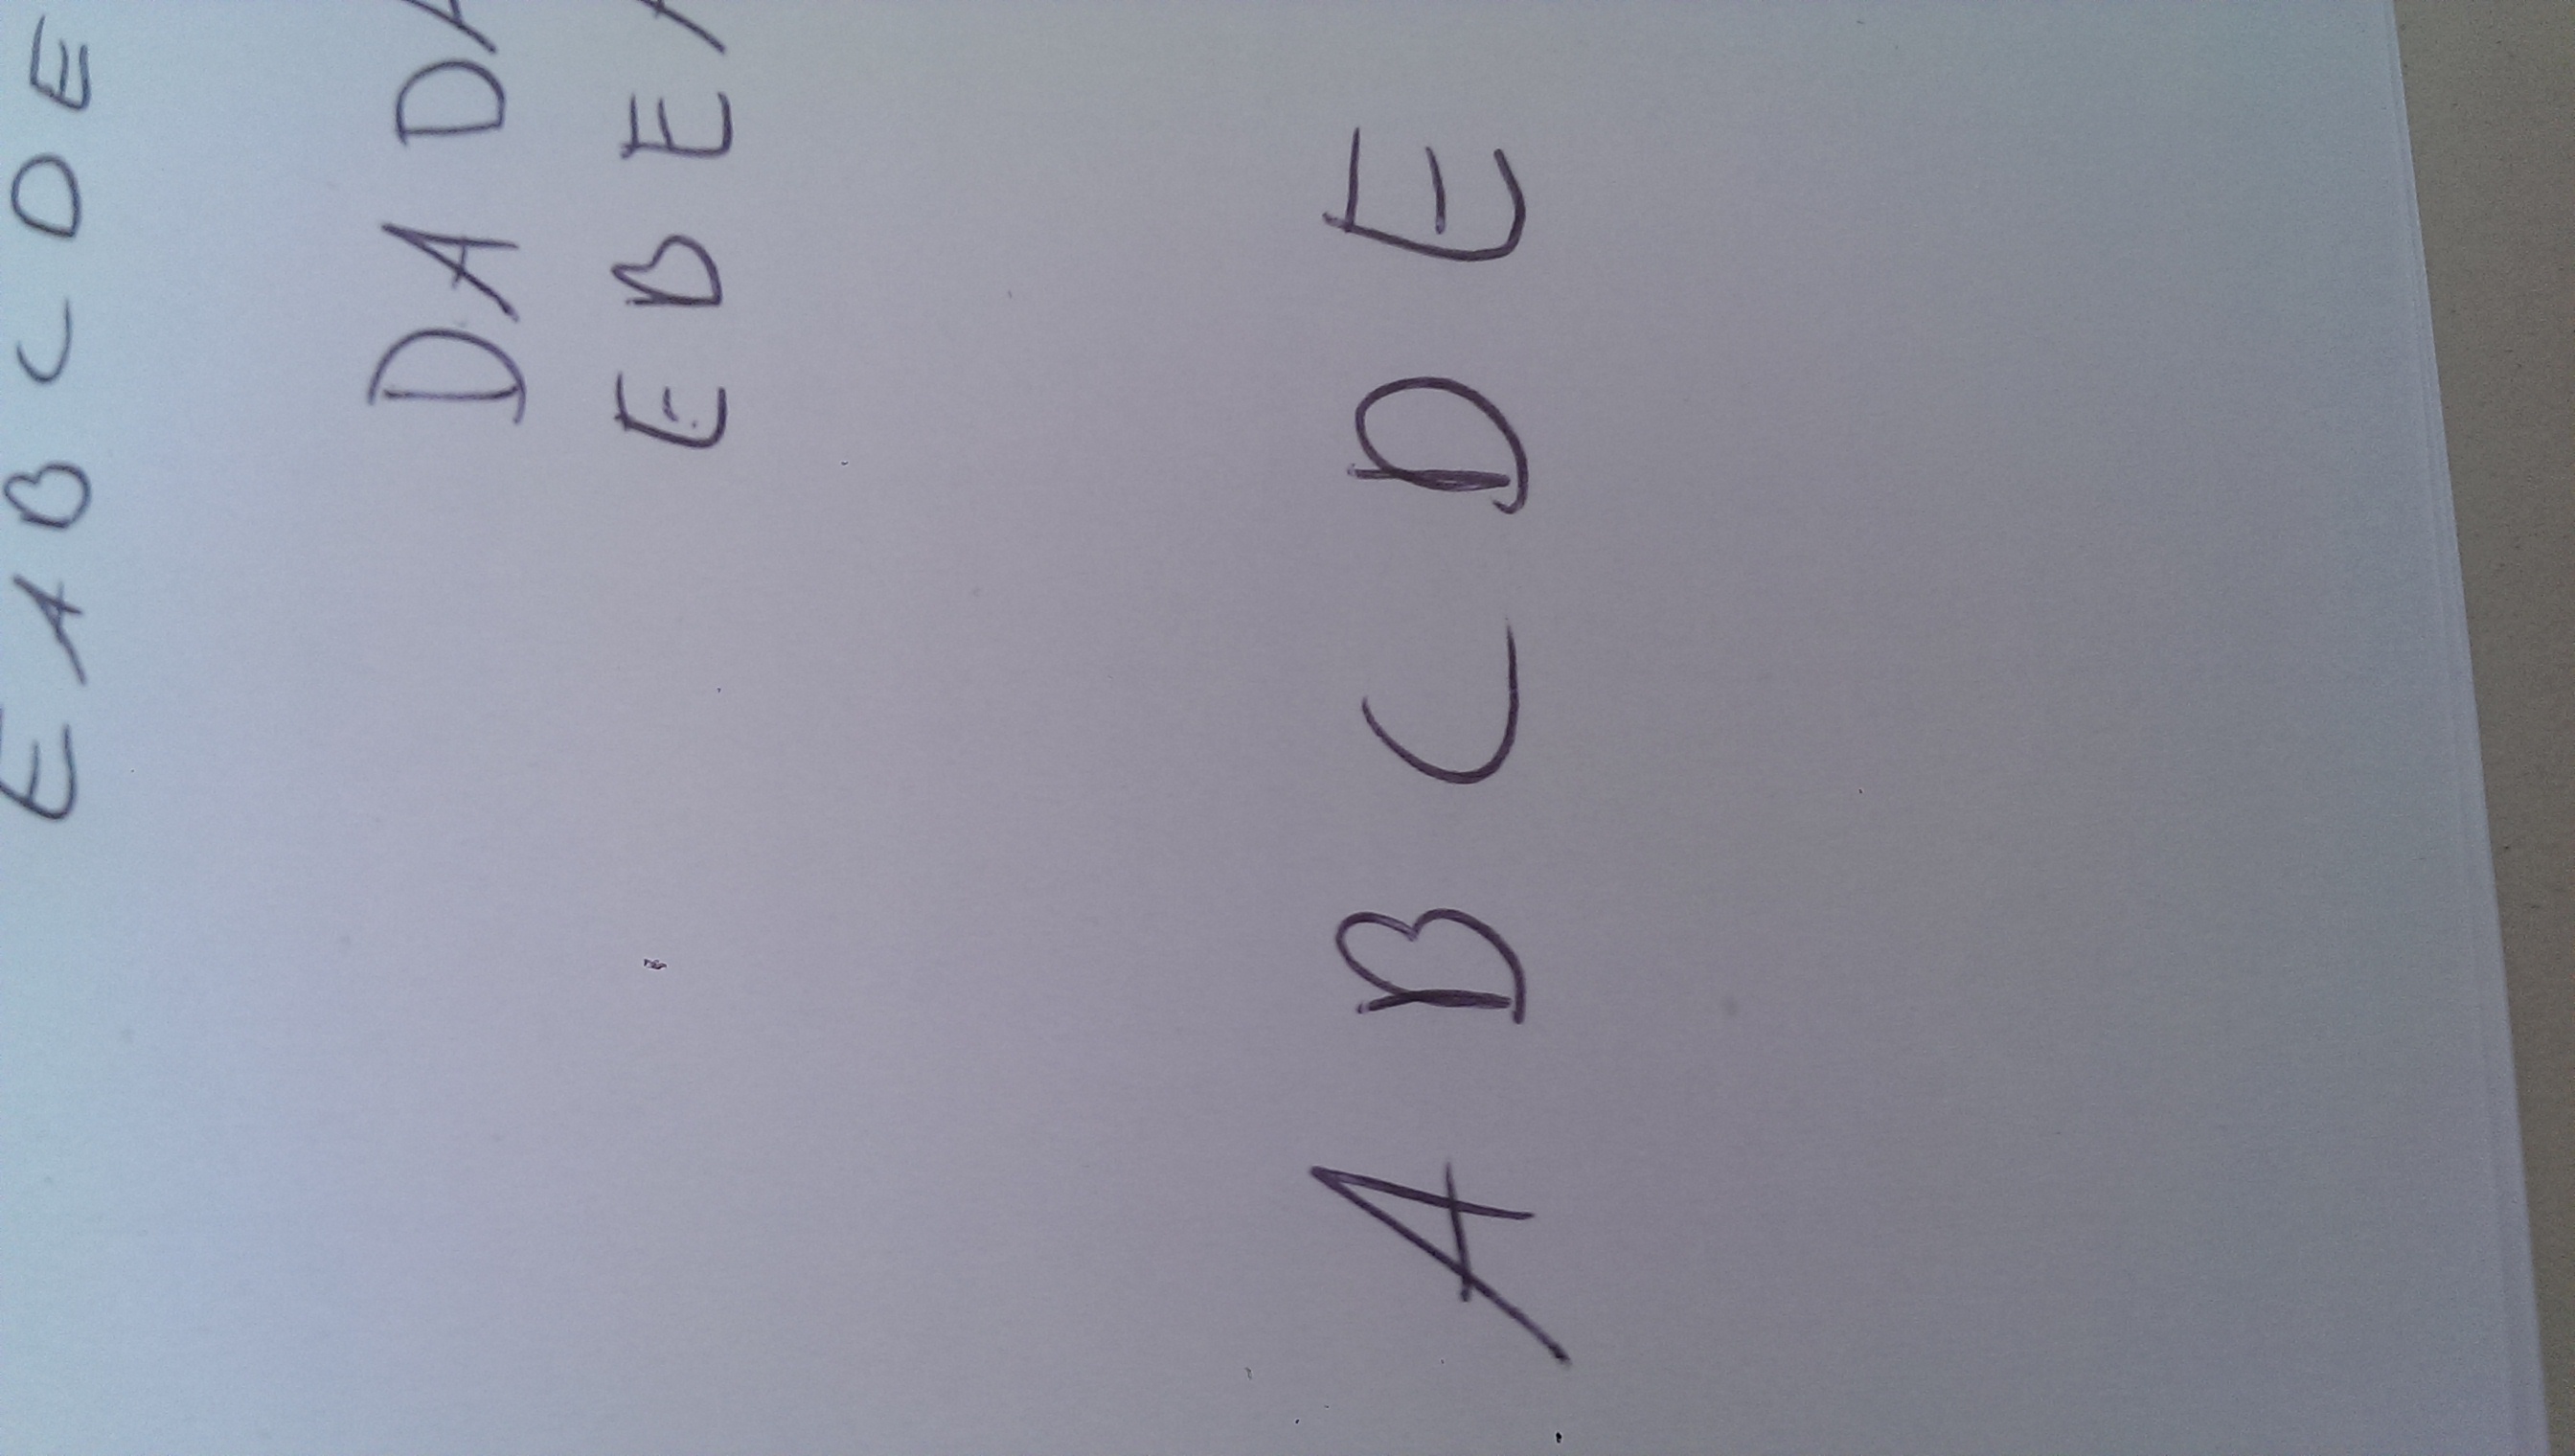 E A B C D E
D A D A
E B E
A B C D E